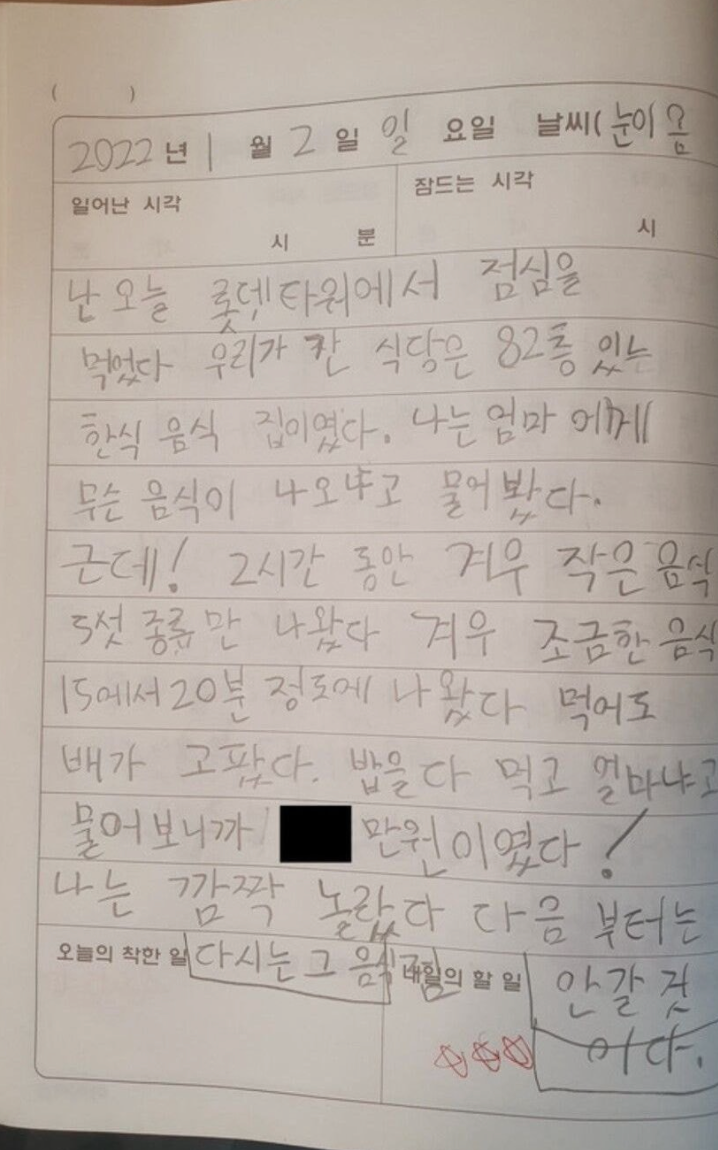 ( )
2022 년 1 월 2 일 일 요일 날씨( 눈이 옴
일어난 시각 시 분 잠드는 시각 시
난 오늘 롯뎃타워에서 점심을
먹었다 우리가 간 식당은 82층 있는
한식 음식 집이였다. 나는 엄마 에게
무슨 음식이 나오냐고 물어 봤다.
근데! 2시간 동안 겨우 작은 음식
5섯 종류 만 나왔다 겨우 조금한 음식
15에서 20분 정도에 나왔다 먹어도
배가 고팠다. 밥을 다 먹고 얼마냐고
물어보니까 만원이였다!
나는 깜짝 놀랐다 다음 부터는
오늘의 착한 일 다시는 그 음식점 내일의 할 일 안갈 것
이다.